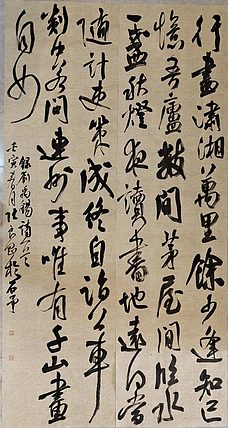 行盡瀟湘萬里餘少逢知己
憶吾廬數間茅屋閒臨水
一盞秋燈夜讀書地遠何當
隨計吏策成終自詣公車
剡中若問連州事唯有千山畫
不如
錄劉禹錫詩
壬寅 月 於石